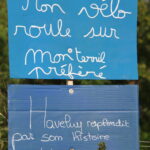 Mon vélo
roule sur
mon terril
préféré
Haveluy resplendit
par son histoire